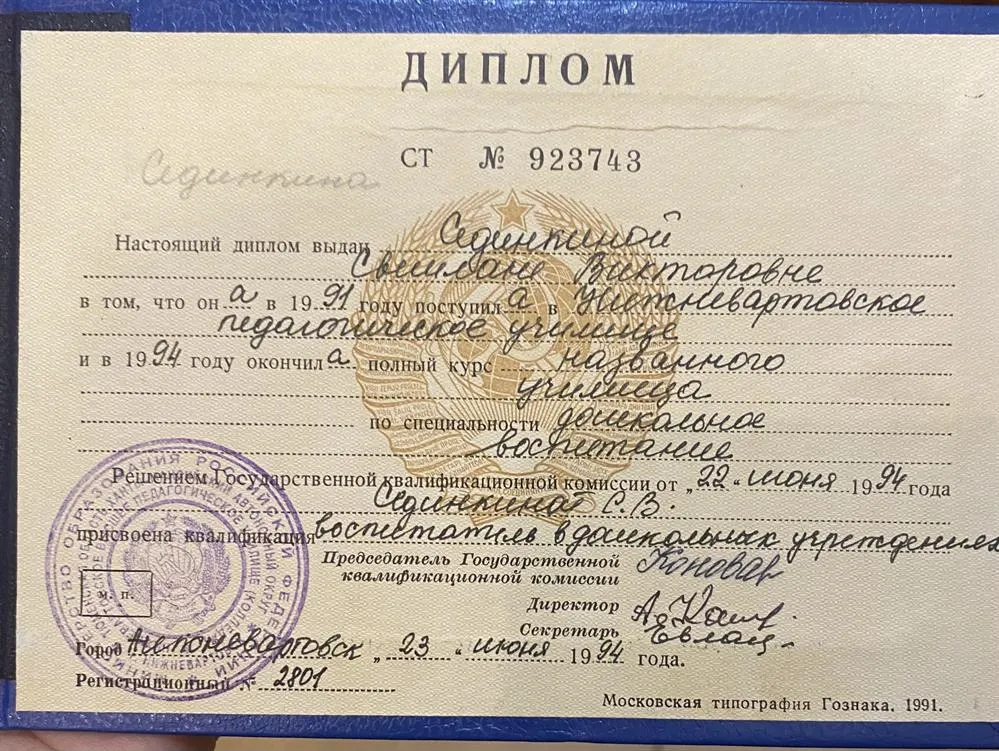 ДИПЛОМ
СТ № 923743
Сединкина
Настоящий диплом выдан Сединкиной
Светлане Викторовне
в том, что он а в 1991 году поступил а в Нижневартовское
педагогическое училище
и в 1994 году окончил а полный курс названного
училища
по специальности дошкольное
воспитание
Решением Государственной квалификационной комиссии от „22“ июня 1994 года
Сединкиной С.В.
присвоена квалификация воспитатель в дошкольных учреждениях
Председатель Государственной
квалификационной комиссии
Директор
Секретарь
м. п.
Город Нижневартовск „23“ июня 1994 года.
Регистрационный № 2801
Московская типография Гознака. 1991.